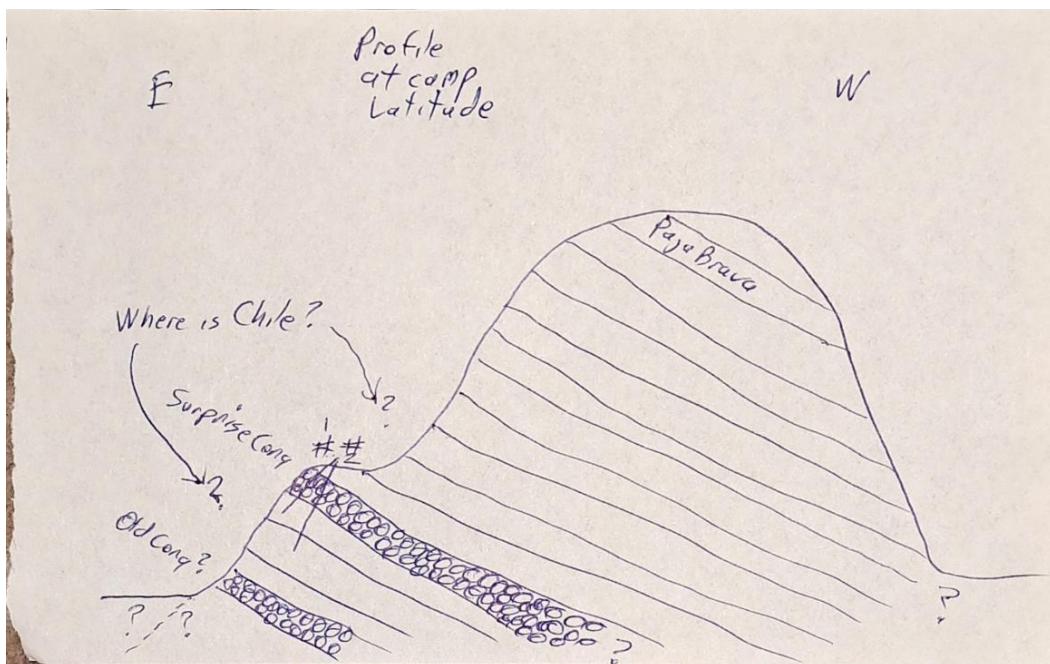 Profile
at camp
Latitude
E
W
Paja Brava
Where is Chile?
?
Surprise Cong
1
# #
2
?
Old Cong?
? ?
?
?